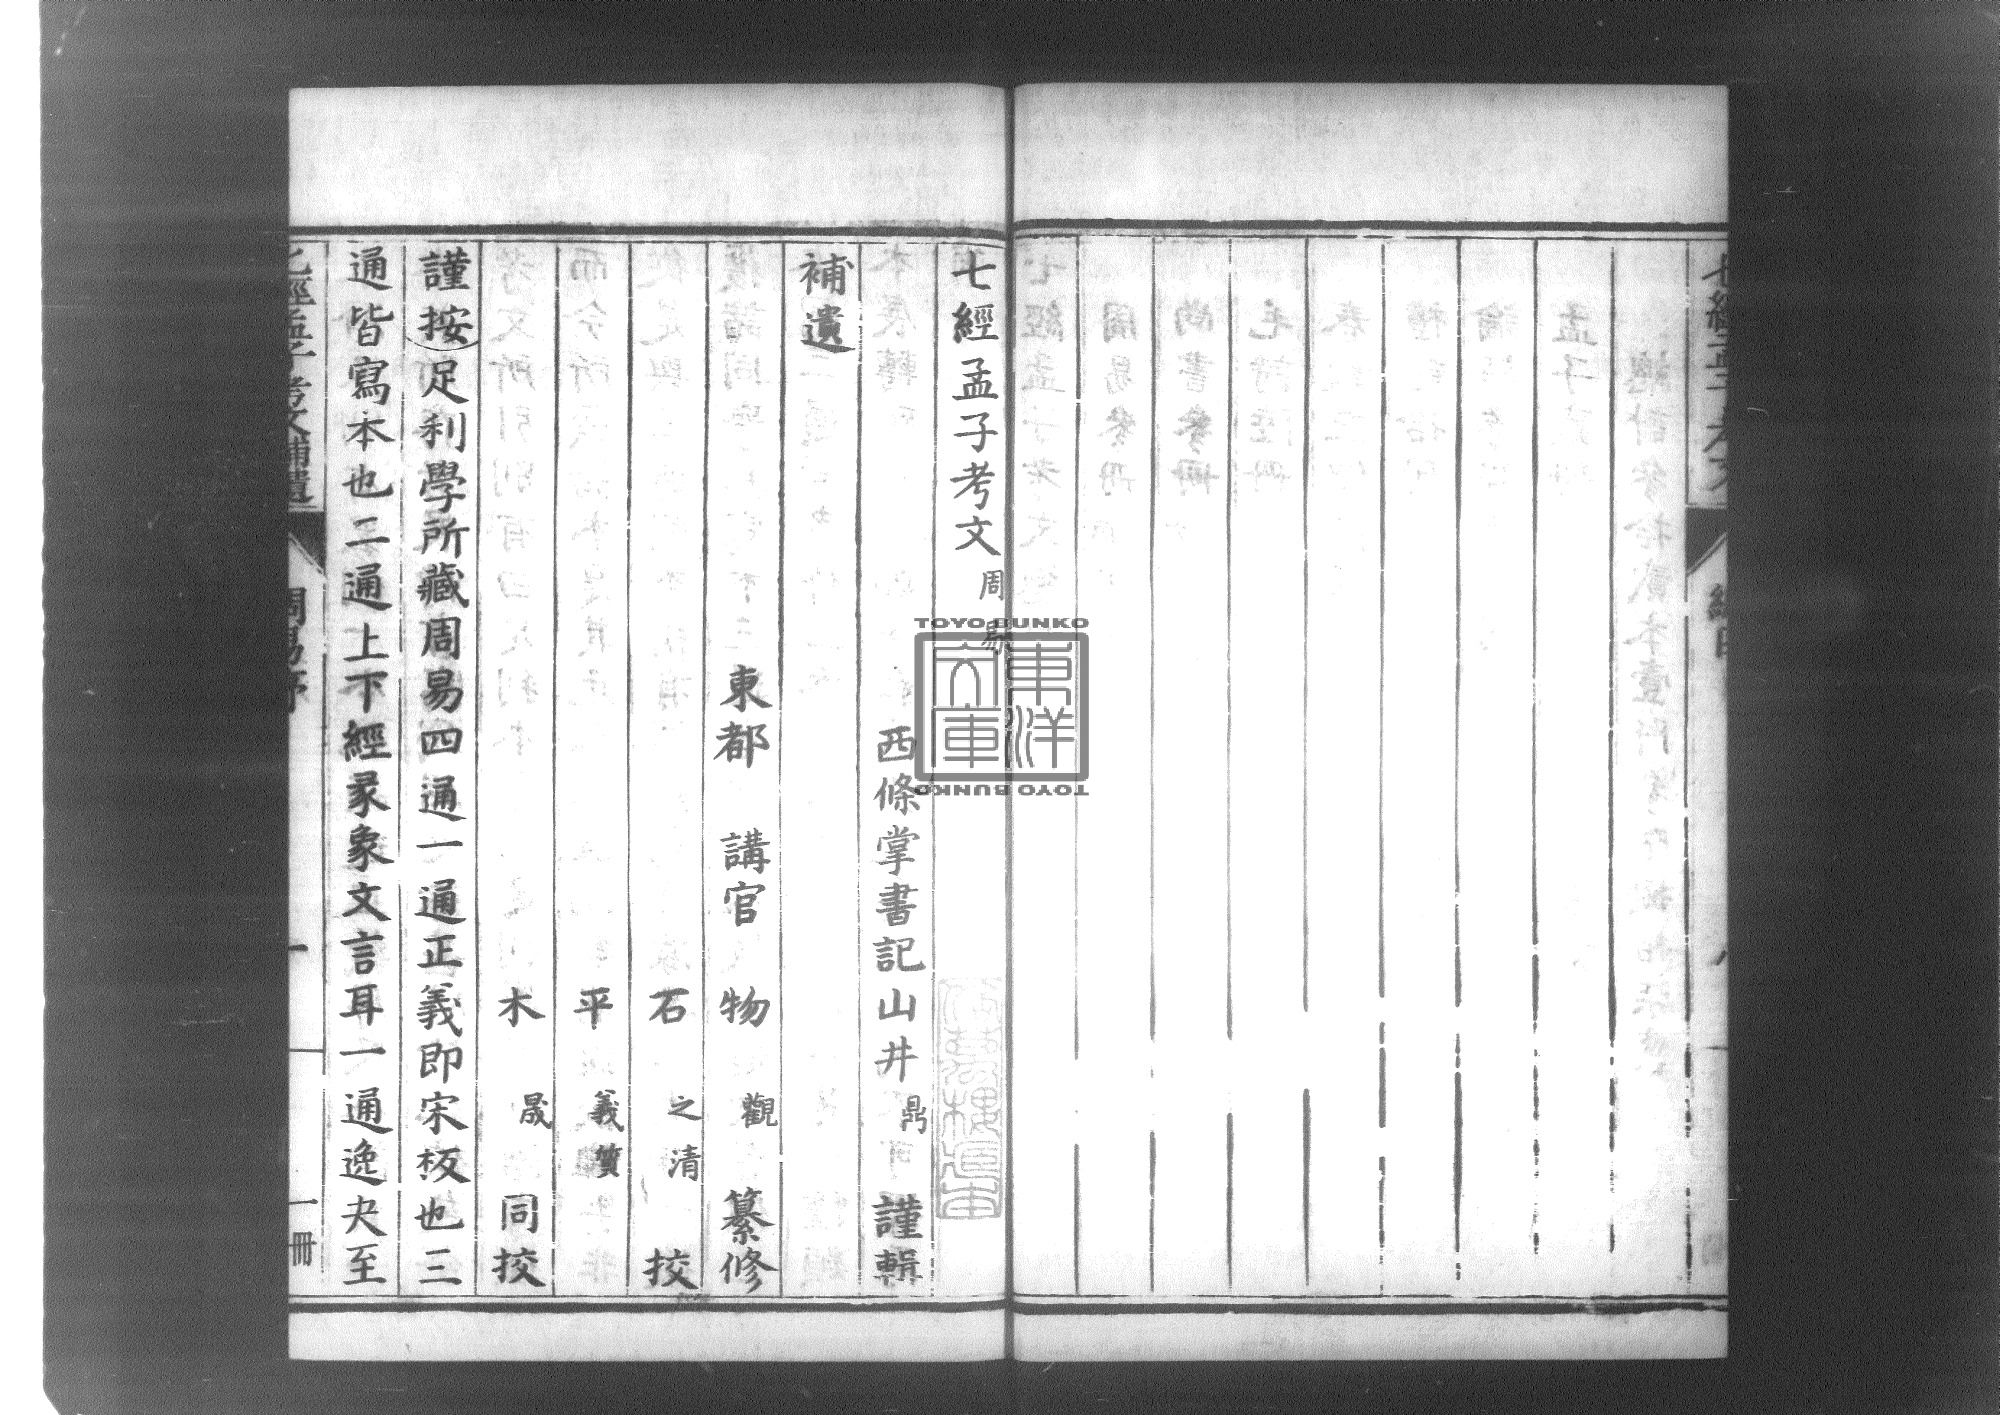 七經孟子考文周易
西條掌書記山井鼎謹輯
補遺
東都講官物觀纂修
石之清挍
平義質
木晟同挍
謹按足利學所藏周易四通一通正義即宋板也三
通皆寫本也二通上下經彖象文言耳一通逸夬至
七經孟子考文補遺 周易序 一 一冊
TOYO BUNKO
東洋文庫
TOYO BUNKO